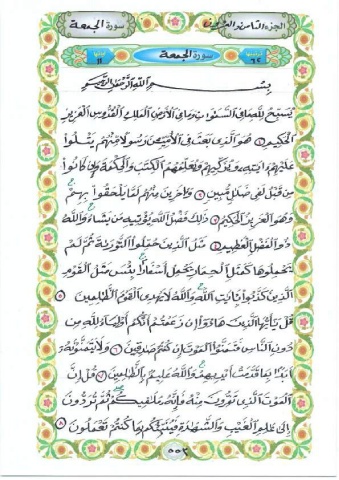 الجزء الثامن والعشرون سورة الجمعة
ترتيبها ٦٢ سورة الجمعة آياتها ١١
بسم الله الرحمن الرحيم
يسبح لله ما في السموات وما في الأرض الملك القدوس العزيز
الحكيم ١ هو الذي بعث في الأميين رسولا منهم يتلوا
عليهم آيته ويزكيهم ويعلمهم الكتب والحكمة وإن كانوا
من قبل لفي ضلل مبين ٢ وءاخرين منهم لما يلحقوا بهم
وهو العزيز الحكيم ٣ ذلك فضل الله يؤتيه من يشاء والله
ذو الفضل العظيم ٤ مثل الذين حملوا التورىة ثم لم
يحملوها كمثل الحمار يحمل أسفارا بئس مثل القوم
الذين كذبوا بآيت الله والله لا يهدي القوم الظلمين ٥
قل يأيها الذين هادوا إن زعمتم أنكم أولياء لله من
دون الناس فتمنوا الموت إن كنتم صدقين ٦ ولا يتمنونه
أبدا بما قدمت أيديهم والله عليم بالظلمين ٧ قل إن
الموت الذي تفرون منه فإنه ملقيكم ثم تردون
إلى علم الغيب والشهدة فينبئكم بما كنتم تعملون ٨
٥٥٣